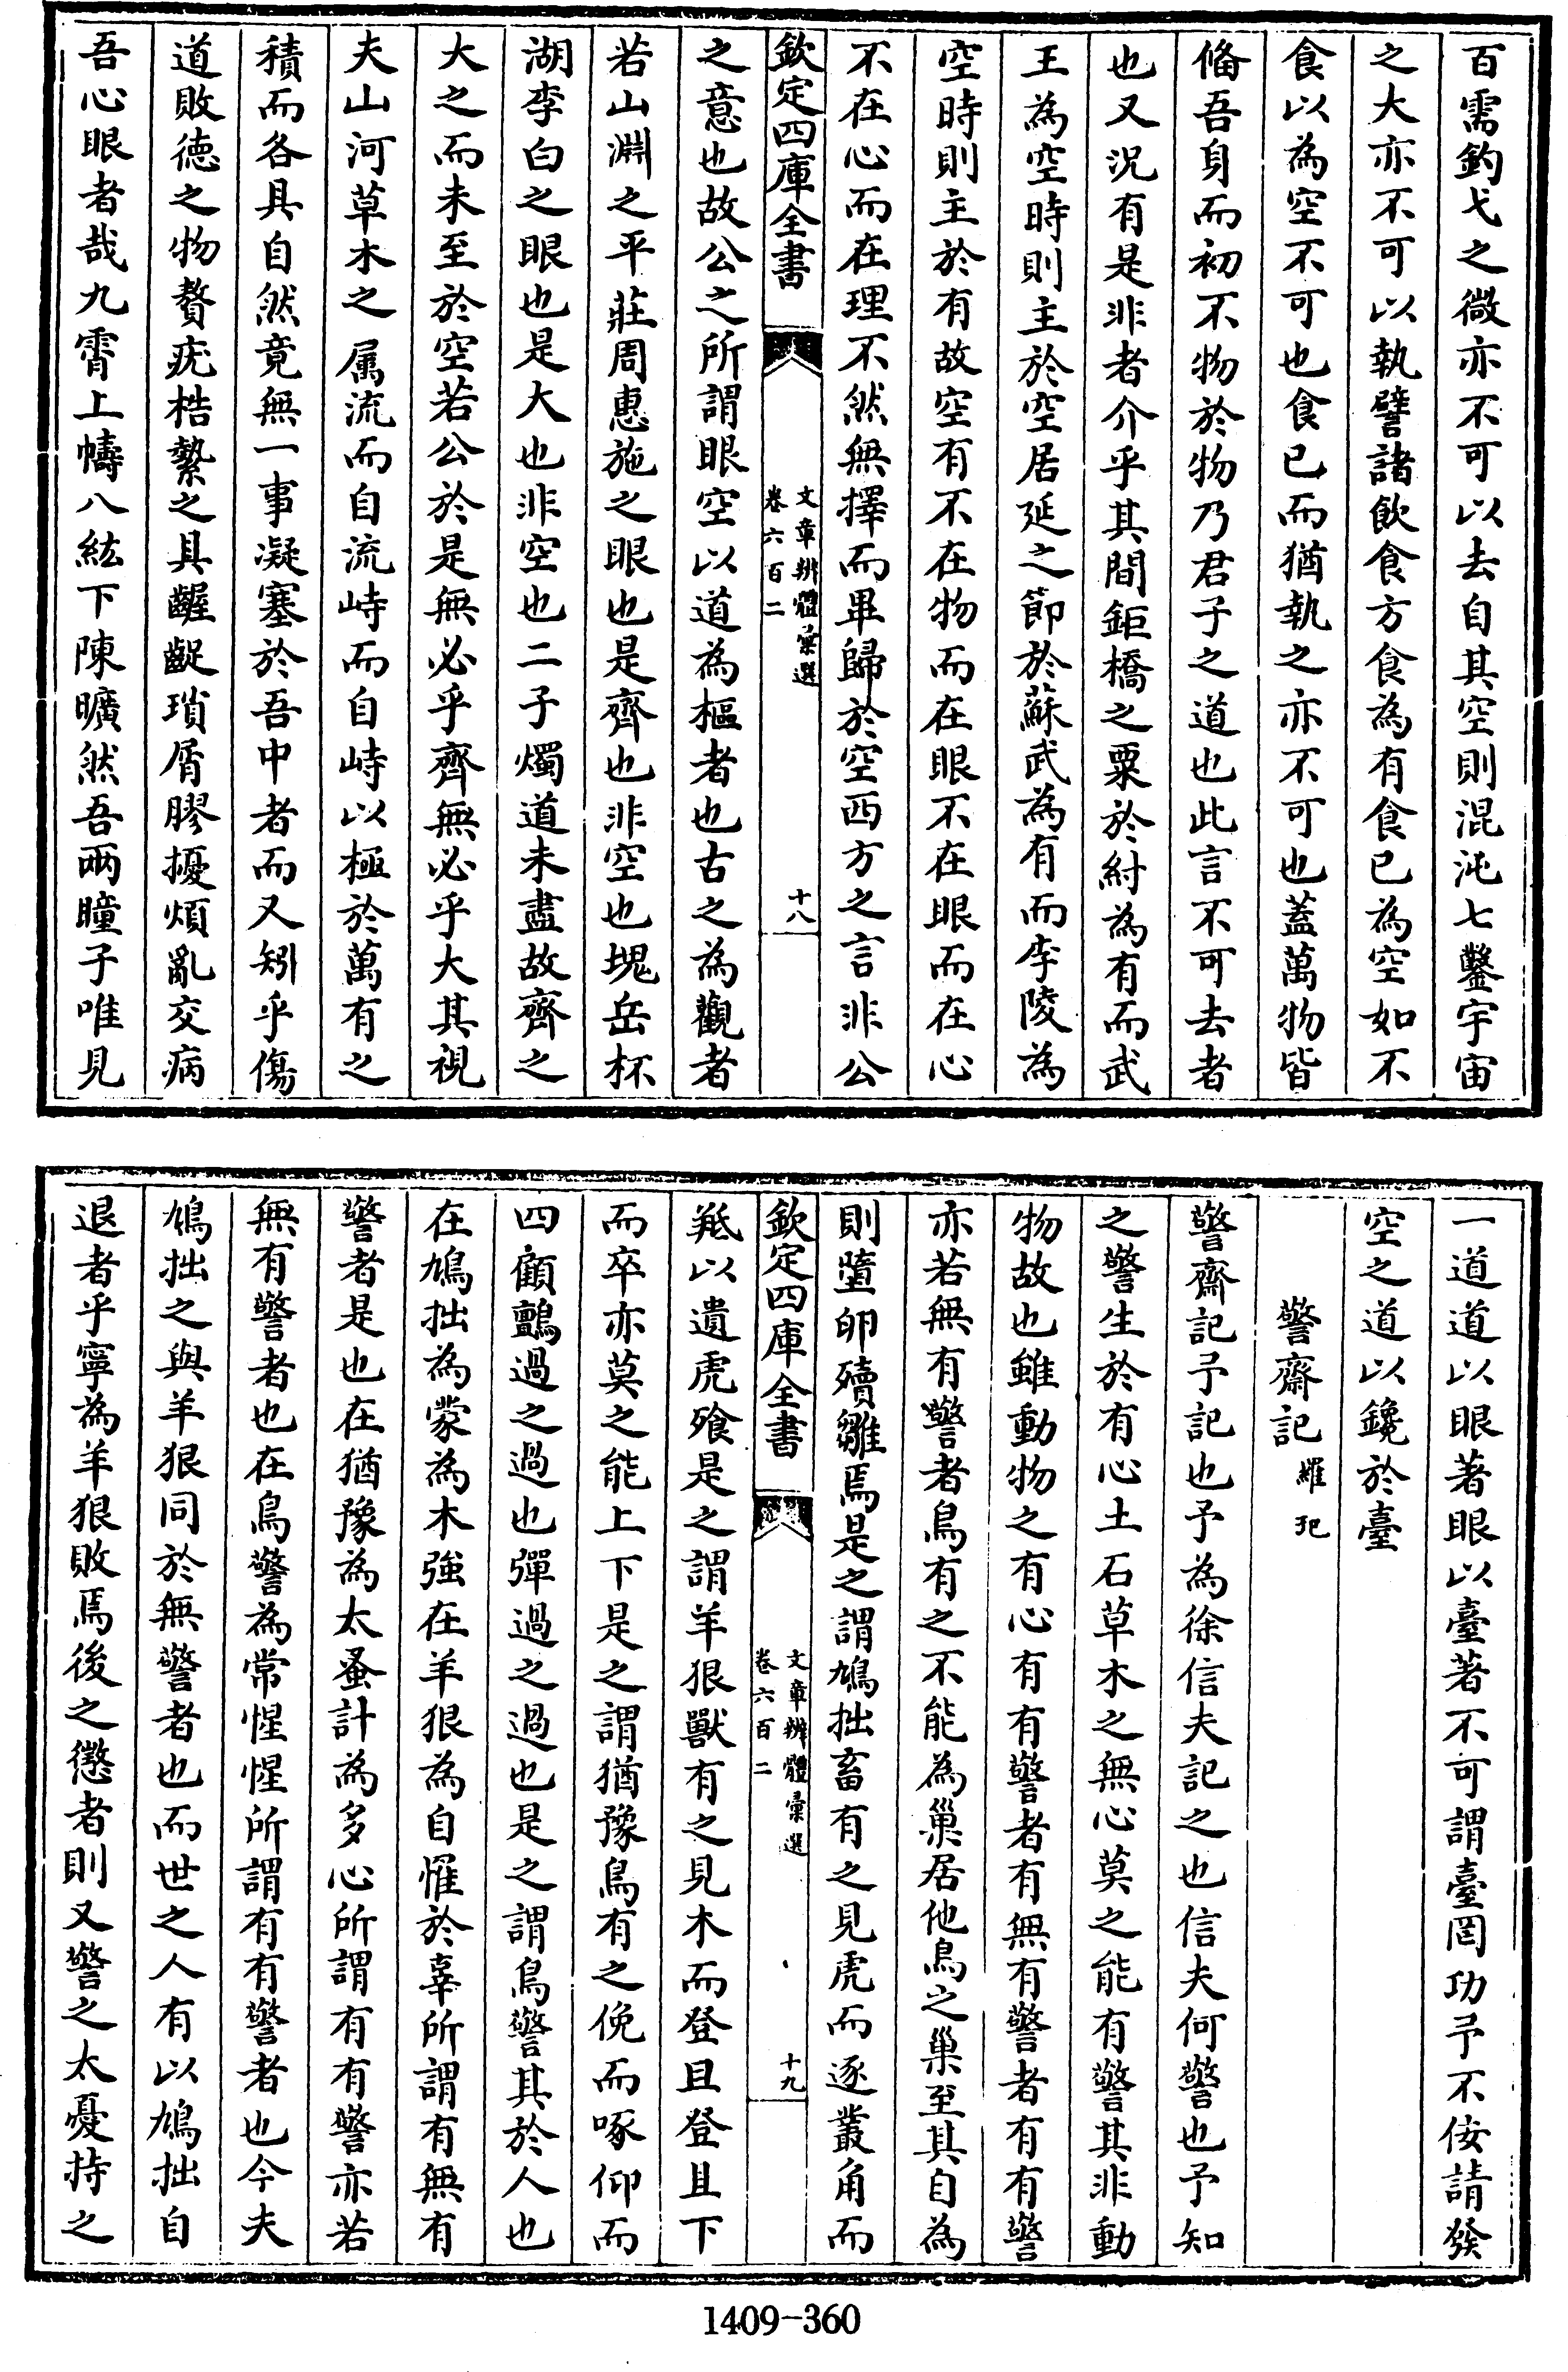 百需釣弋之微亦不可以去自其空則混沌七鑿宇宙
之大亦不可以執譬諸飲食方食為有食已為空如不
食以為空不可也食已而猶執之亦不可也蓋萬物皆
偹吾身而初不物於物乃君子之道也此言不可去者
也又況有是非者介乎其間鉅橋之粟於紂為有而武
王為空時則主於空居延之節於蘇武為有而李陵為
空時則主於有故空有不在物而在眼不在眼而在心
不在心而在理不然無擇而畢歸於空西方之言非公
欽定四庫全書
文章辨體彙選
卷六百二
十八
之意也故公之所謂眼空以道為樞者也古之為觀者
若山淵之平莊周惠施之眼也是齊也非空也塊岳杯
湖李白之眼也是大也非空也二子燭道未盡故齊之
大之而未至於空若公於是無必乎齊無必乎大其視
夫山河草木之属流而自流峙而自峙以極於萬有之
積而各具自然竟無一事凝塞於吾中者而又矧乎傷
道敗德之物贅疣梏縶之具齷齪瑣屑膠擾煩亂交病
吾心眼者哉九霄上幬八紘下陳曠然吾兩瞳子唯見
一道道以眼著眼以臺著不可謂臺罔功予不佞請發
空之道以鑱於臺
警齋記羅玘
警齋記予記也予為徐信夫記之也信夫何警也予知
之警生於有心土石草木之無心莫之能有警其非動
物故也雖動物之有心有有警者有無有警者有有警
亦若無有警者鳥有之不能為巢居他鳥之巢至其自為
則墮卵殰雛焉是之謂鳩拙畜有之見虎而逐叢角而
欽定四庫全書
文章辨體彙選
卷六百二
十九
羝以遺虎飱是之謂羊狠獸有之見木而登且登且下
而卒亦莫之能上下是之謂猶豫鳥有之俛而啄仰而
四顧鸇過之過也彈過之過也是之謂鳥警其於人也
在鳩拙為蒙為木強在羊狠為自懼於辜所謂有無有
警者是也在猶豫為太蚤計為多心所謂有有警亦若
無有警者也在鳥警為常惺惺所謂有有警者也今夫
鳩拙之與羊狠同於無警者也而世之人有以鳩拙自
退者乎寧為羊狠敗焉後之懲者則又警之太憂持之
1409-360